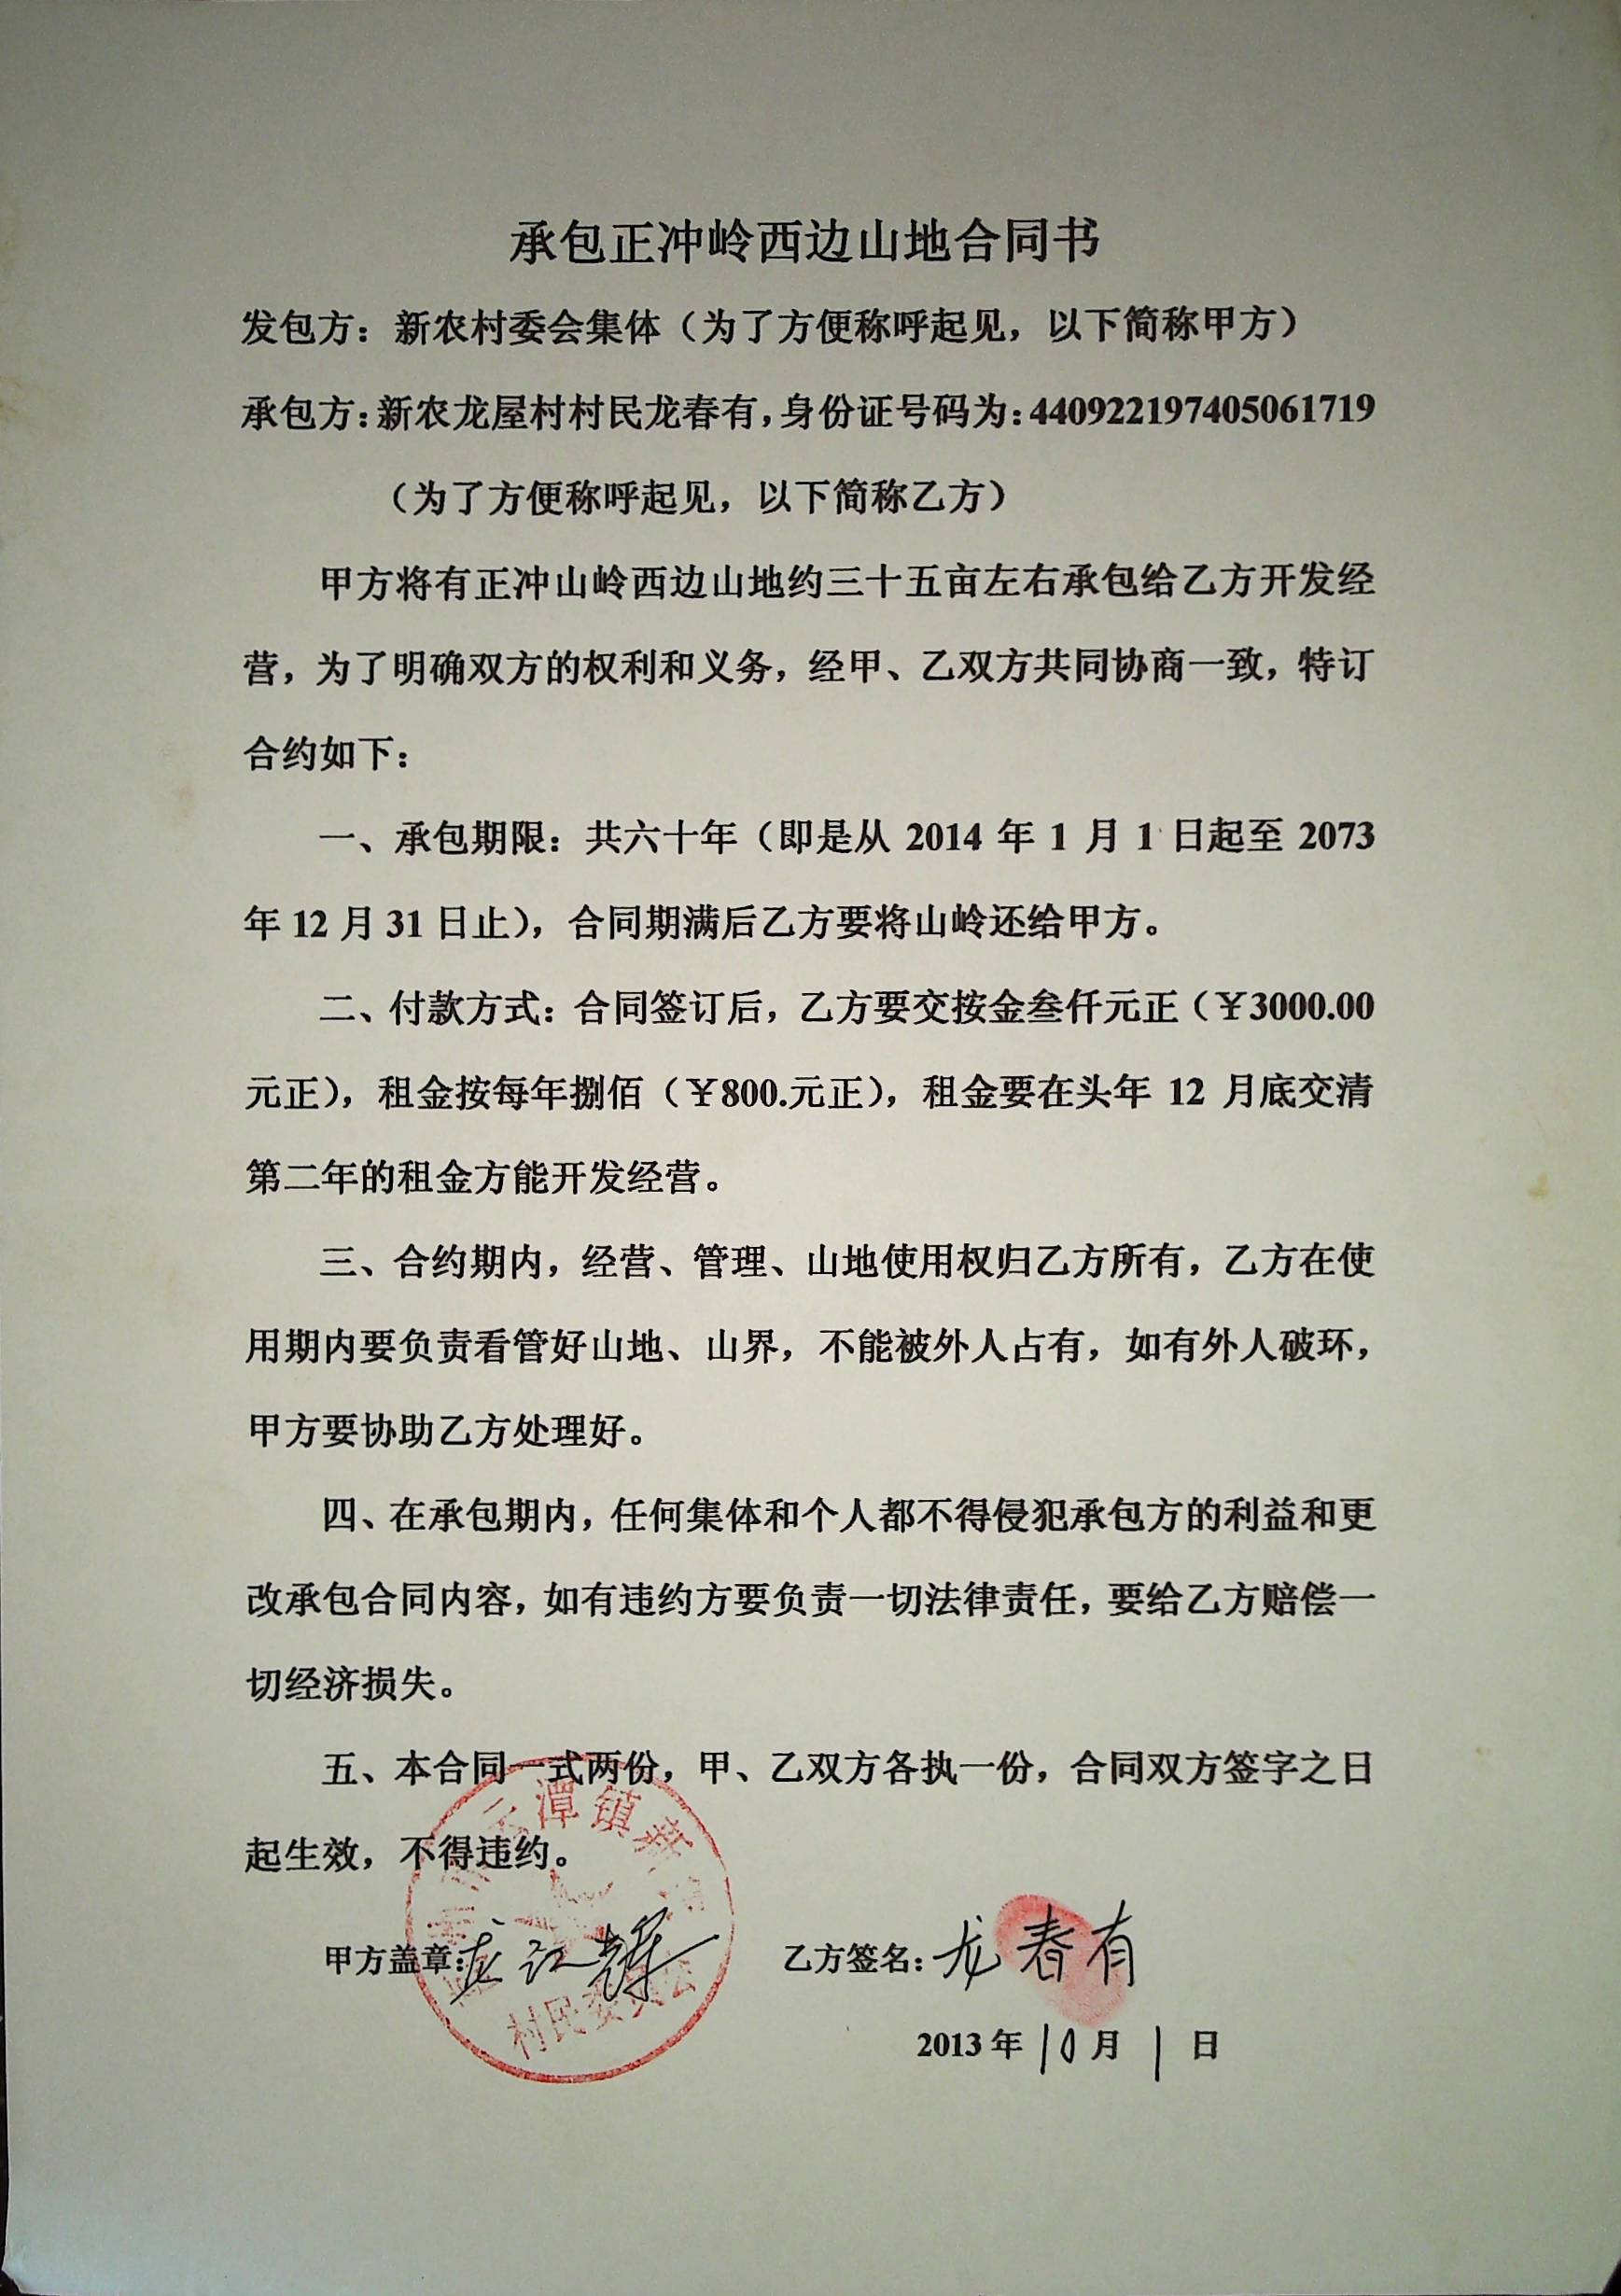 承包正冲岭西边山地合同书
发包方：新农村委会集体（为了方便称呼起见，以下简称甲方）
承包方：新农龙屋村村民龙春有，身份证号码为：440922197405061719
（为了方便称呼起见，以下简称乙方）
甲方将有正冲山岭西边山地约三十五亩左右承包给乙方开发经
营，为了明确双方的权利和义务，经甲、乙双方共同协商一致，特订
合约如下：
一、承包期限：共六十年（即是从 2014 年 1 月 1 日起至 2073
年 12 月 31 日止），合同期满后乙方要将山岭还给甲方。
二、付款方式：合同签订后，乙方要交按金叁仟元正（￥3000.00
元正），租金按每年捌佰（￥800.元正），租金要在头年 12 月底交清
第二年的租金方能开发经营。
三、合约期内，经营、管理、山地使用权归乙方所有，乙方在使
用期内要负责看管好山地、山界，不能被外人占有，如有外人破环，
甲方要协助乙方处理好。
四、在承包期内，任何集体和个人都不得侵犯承包方的利益和更
改承包合同内容，如有违约方要负责一切法律责任，要给乙方赔偿一
切经济损失。
五、本合同一式两份，甲、乙双方各执一份，合同双方签字之日
起生效，不得违约。
云潭镇新
村民委员会
甲方盖章：龙江辉 乙方签名：龙春有
2013 年 10 月 1 日